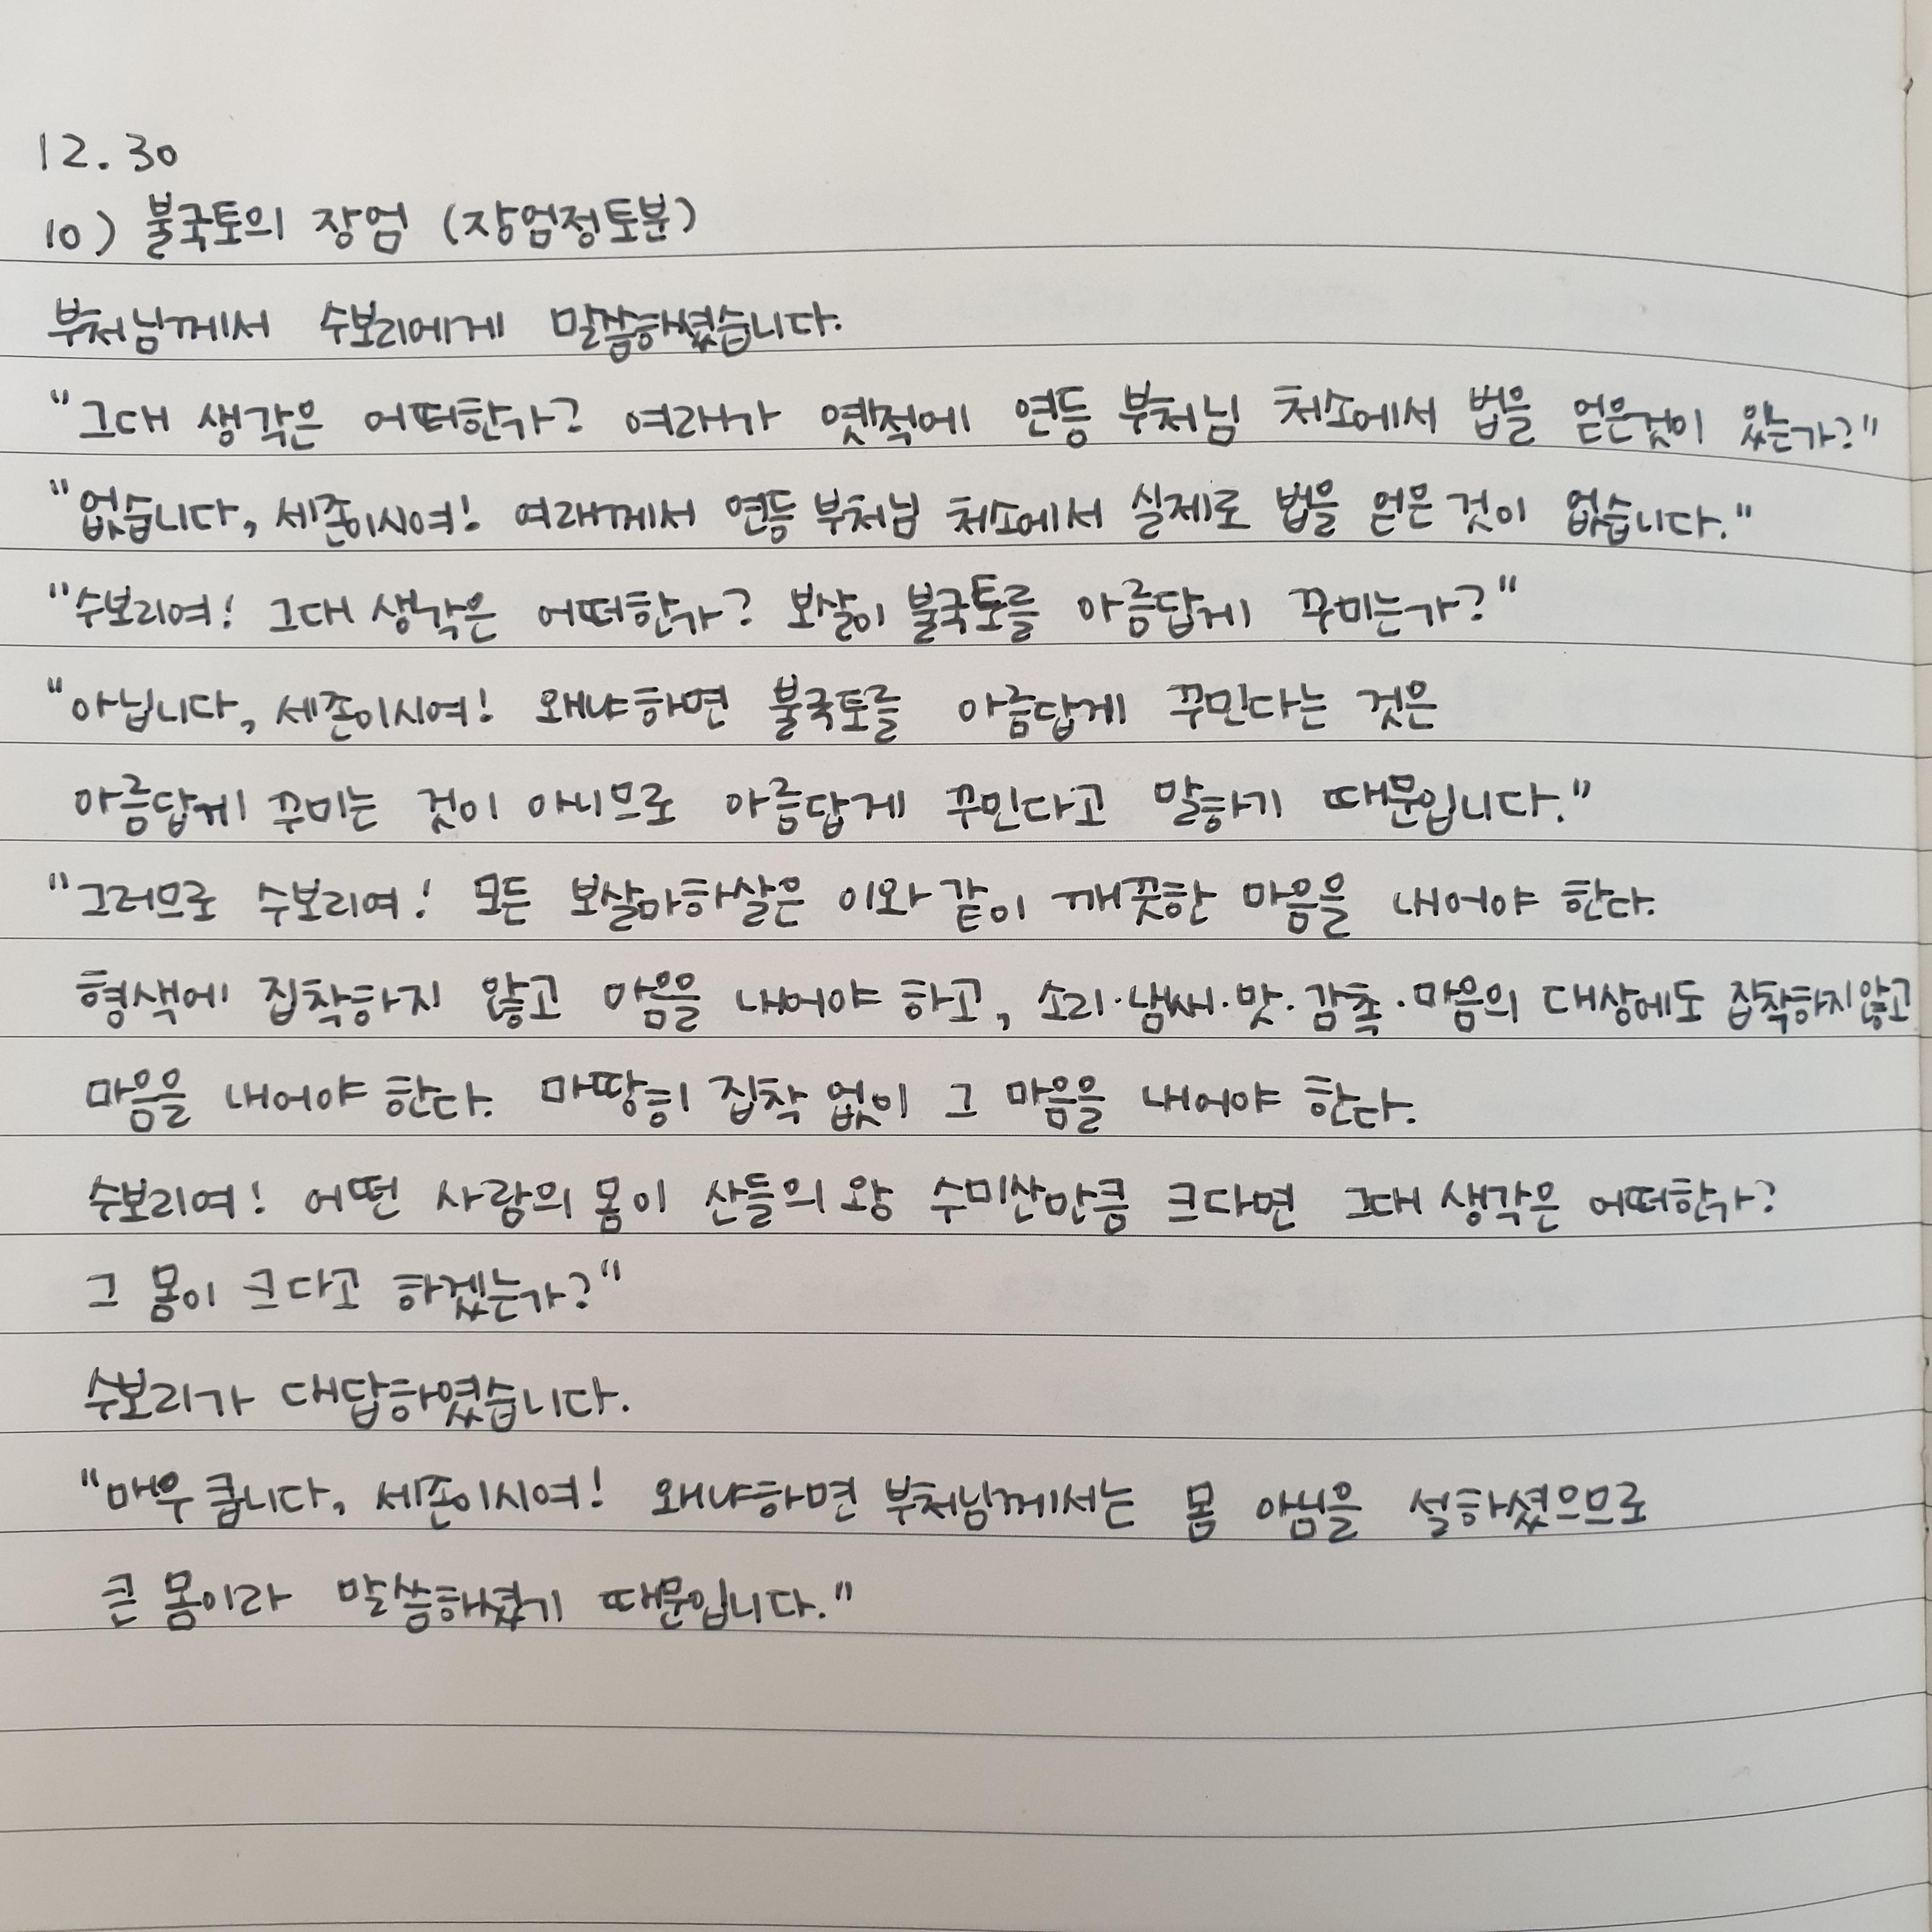 12.30
10) 불국토의 장엄 (장엄정토분)
부처님께서 수보리에게 말씀하셨습니다.
"그대 생각은 어떠한가? 여래가 옛적에 연등 부처님 처소에서 법을 얻은것이 있는가?"
"없습니다, 세존이시여! 여래께서 연등 부처님 처소에서 실제로 법을 얻은 것이 없습니다."
"수보리여! 그대 생각은 어떠한가? 보살이 불국토를 아름답게 꾸미는가?"
"아닙니다, 세존이시여! 왜냐하면 불국토를 아름답게 꾸민다는 것은
아름답게 꾸미는 것이 아니므로 아름답게 꾸민다고 말하기 때문입니다."
"그러므로 수보리여! 모든 보살마하살은 이와 같이 깨끗한 마음을 내어야 한다.
형색에 집착하지 않고 마음을 내어야 하고, 소리·냄새·맛·감촉·마음의 대상에도 집착하지않고
마음을 내어야 한다. 마땅히 집착 없이 그 마음을 내어야 한다.
수보리여! 어떤 사람의 몸이 산들의 왕 수미산만큼 크다면 그대 생각은 어떠한가?
그 몸이 크다고 하겠는가?"
수보리가 대답하였습니다.
"매우 큽니다, 세존이시여! 왜냐하면 부처님께서는 몸 아님을 설하셨으므로
큰 몸이라 말씀하셨기 때문입니다."